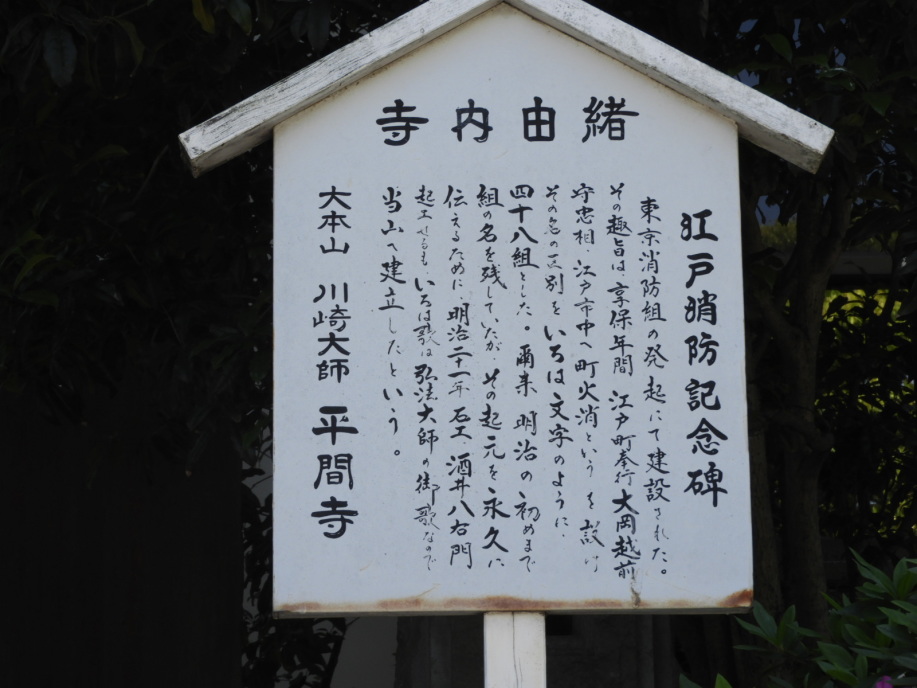 緒由内寺
江戸消防記念碑
東京消防組の発起にて建設された。
その趣旨は、享保年間 江戸町奉行 大岡越前
守忠相、江戸市中へ町火消というを設け
その名の区別をいろは文字のように、
四十八組とした。爾来 明治の初めまで
組の名を残していたが、その起元を永久に
伝えるために、明治二十一年 石工、酒井八右門
起工せるも、いろは歌は弘法大師の御歌なので
当山へ建立したという。
大本山 川崎大師 平間寺